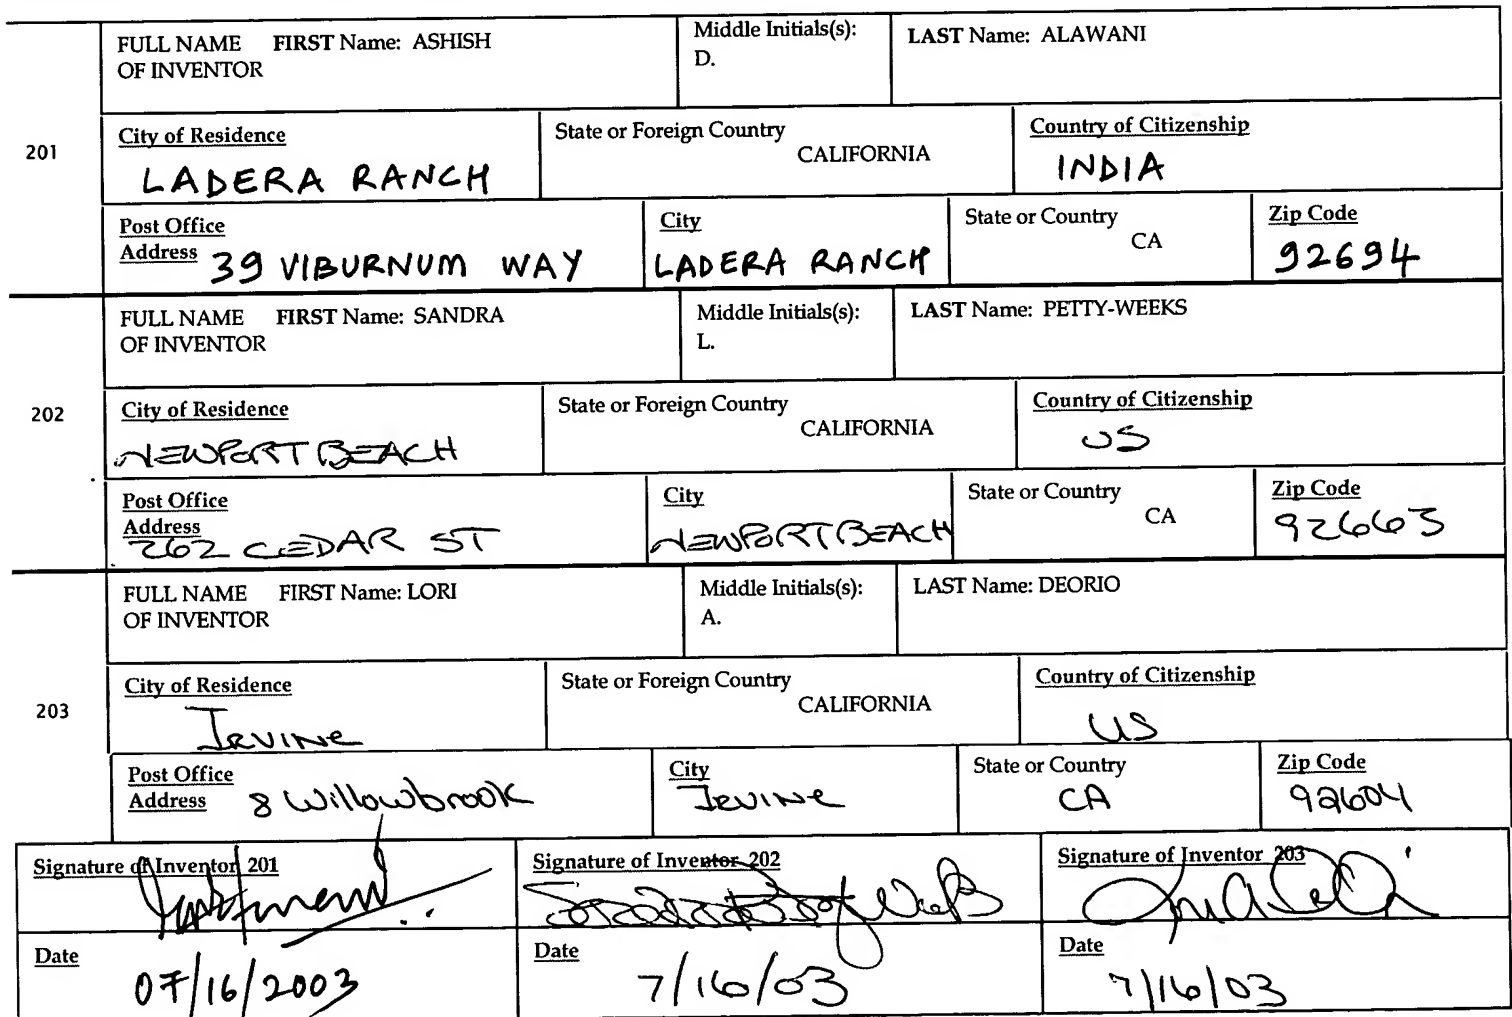 FULL NAME OF INVENTOR FIRST Name: ASHISH Middle Initials(s): D. LAST Name: ALAWANI
201
City of Residence LADERA RANCH State or Foreign Country CALIFORNIA Country of Citizenship INDIA
Post Office Address 39 VIBURNUM WAY City LADERA RANCH State or Country CA Zip Code 92694
FULL NAME OF INVENTOR FIRST Name: SANDRA Middle Initials(s): L. LAST Name: PETTY-WEEKS
202
City of Residence NEWPORT BEACH State or Foreign Country CALIFORNIA Country of Citizenship US
Post Office Address 262 CEDAR ST City NEWPORT BEACH State or Country CA Zip Code 92663
FULL NAME OF INVENTOR FIRST Name: LORI Middle Initials(s): A. LAST Name: DEORIO
203
City of Residence Irvine State or Foreign Country CALIFORNIA Country of Citizenship US
Post Office Address 8 Willowbrook City Irvine State or Country CA Zip Code 92604
Signature of Inventor 201 Signature of Inventor 202 Signature of Inventor 203
Date 07/16/2003 Date 7/16/03 Date 7/16/03